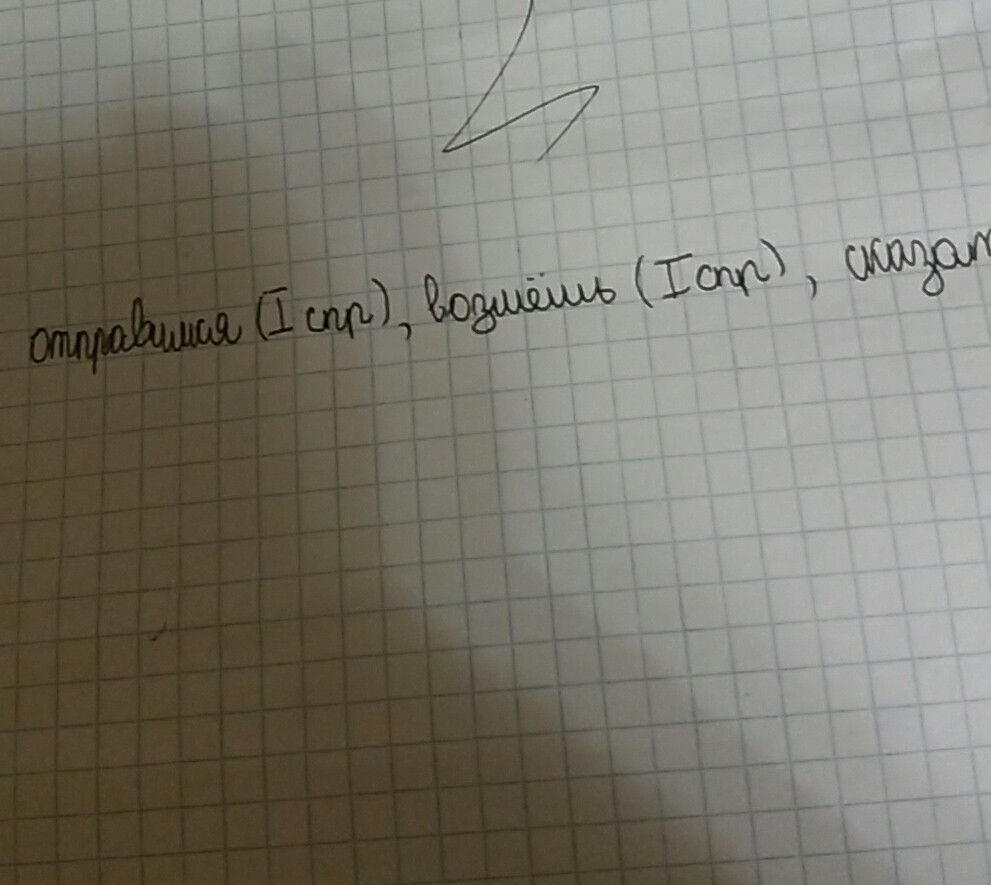 отправимся (I спр), возьмёшь (I спр), сказат